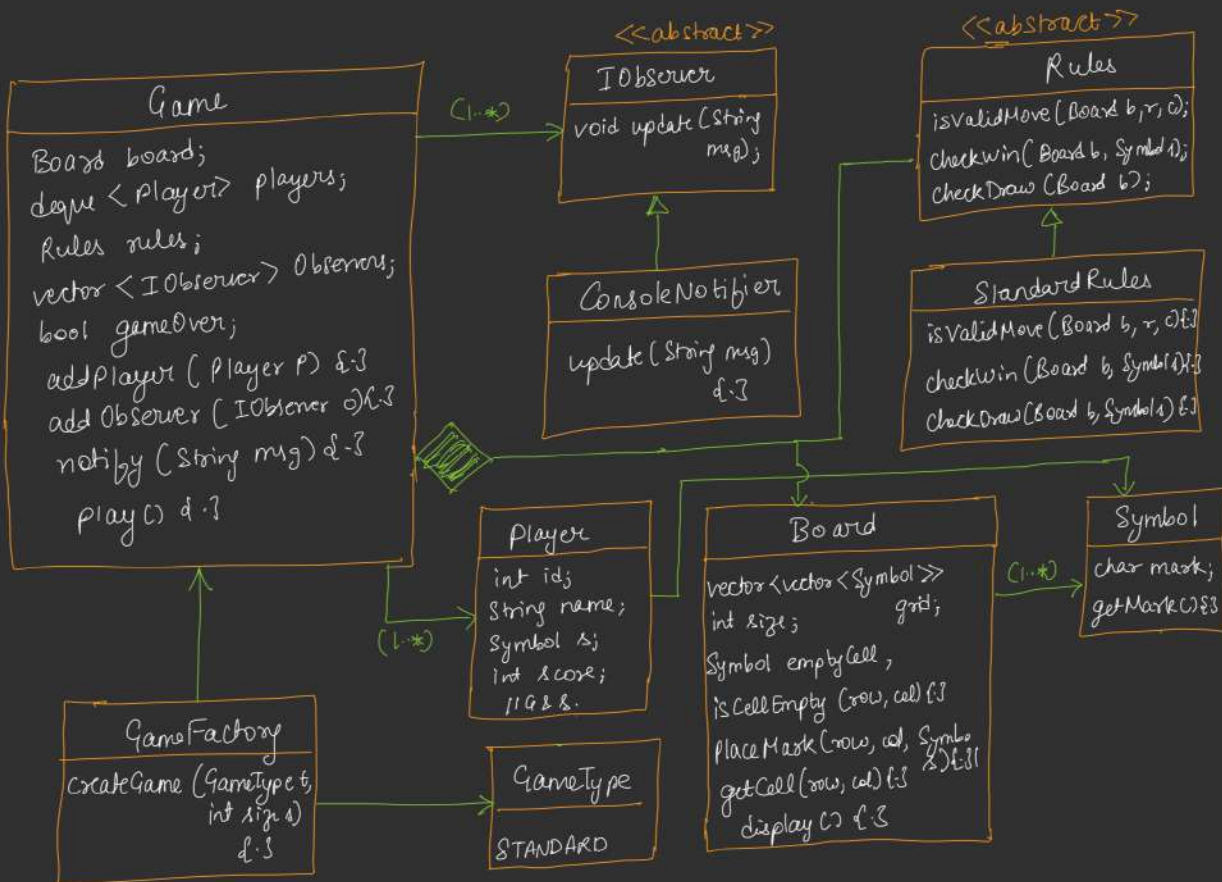 Game
Board board;
deque <Player> players;
Rules rules;
vector <IObserver> Observers;
bool gameOver;
addPlayer (Player P) {·}
addObserver (IObserver o){·}
notify (String msg) {·}
play() {·}
(1..*)
<<abstract>>
IObserver
void update(String
msg);
<<abstract>>
Rules
isValidMove(Board b, r, c);
checkWin(Board b, Symbol s);
checkDraw (Board b);
ConsoleNotifier
update(String msg)
{·}
StandardRules
isValidMove(Board b, r, c){·}
checkWin(Board b, Symbol s){·}
checkDraw(Board b, Symbol s){·}
(1..*)
Player
int id;
String name;
Symbol s;
int score;
//G&S.
Board
vector<vector<Symbol>>
grid;
int size;
Symbol emptyCell,
isCellEmpty (row, col){·}
PlaceMark(row, col, Symbo
s){·}
getCell(row, col){·}
display() {·}
(1..*)
Symbol
char mark;
getMark(){}
GameFactory
createGame (GameType t,
int size)
{·}
GameType
STANDARD